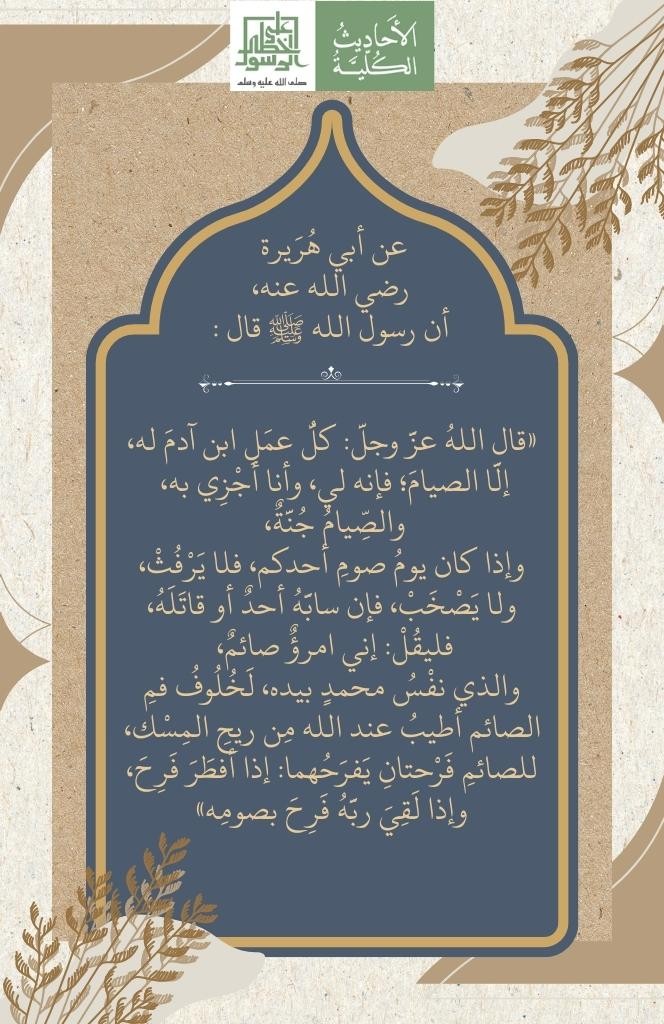 الأحاديث
الكُلِّيَّةُ
صلى الله عليه وسلم
عن أبي هُرَيرة
رضي الله عنه،
أن رسول الله ﷺ قال :
«قال اللهُ عزّ وجلّ: كلُّ عمَلِ ابن آدمَ له،
إلّا الصيامَ؛ فإنه لي، وأنا أَجْزِي به،
والصِّيامُ جُنّةٌ،
وإذا كان يومُ صومِ أحدكم، فلا يَرْفُثْ،
ولا يَصْخَبْ، فإن سابّهُ أحدٌ أو قاتَلَهُ،
فليقُلْ: إني امرؤٌ صائمٌ،
والذي نفْسُ محمدٍ بيده، لَخُلُوفُ فمِ
الصائم أطيبُ عند الله مِن ريحِ المِسْك،
للصائمِ فَرْحتانِ يَفرَحُهما: إذا أفطَرَ فَرِحَ،
وإذا لَقِيَ ربّهُ فَرِحَ بصومِه»